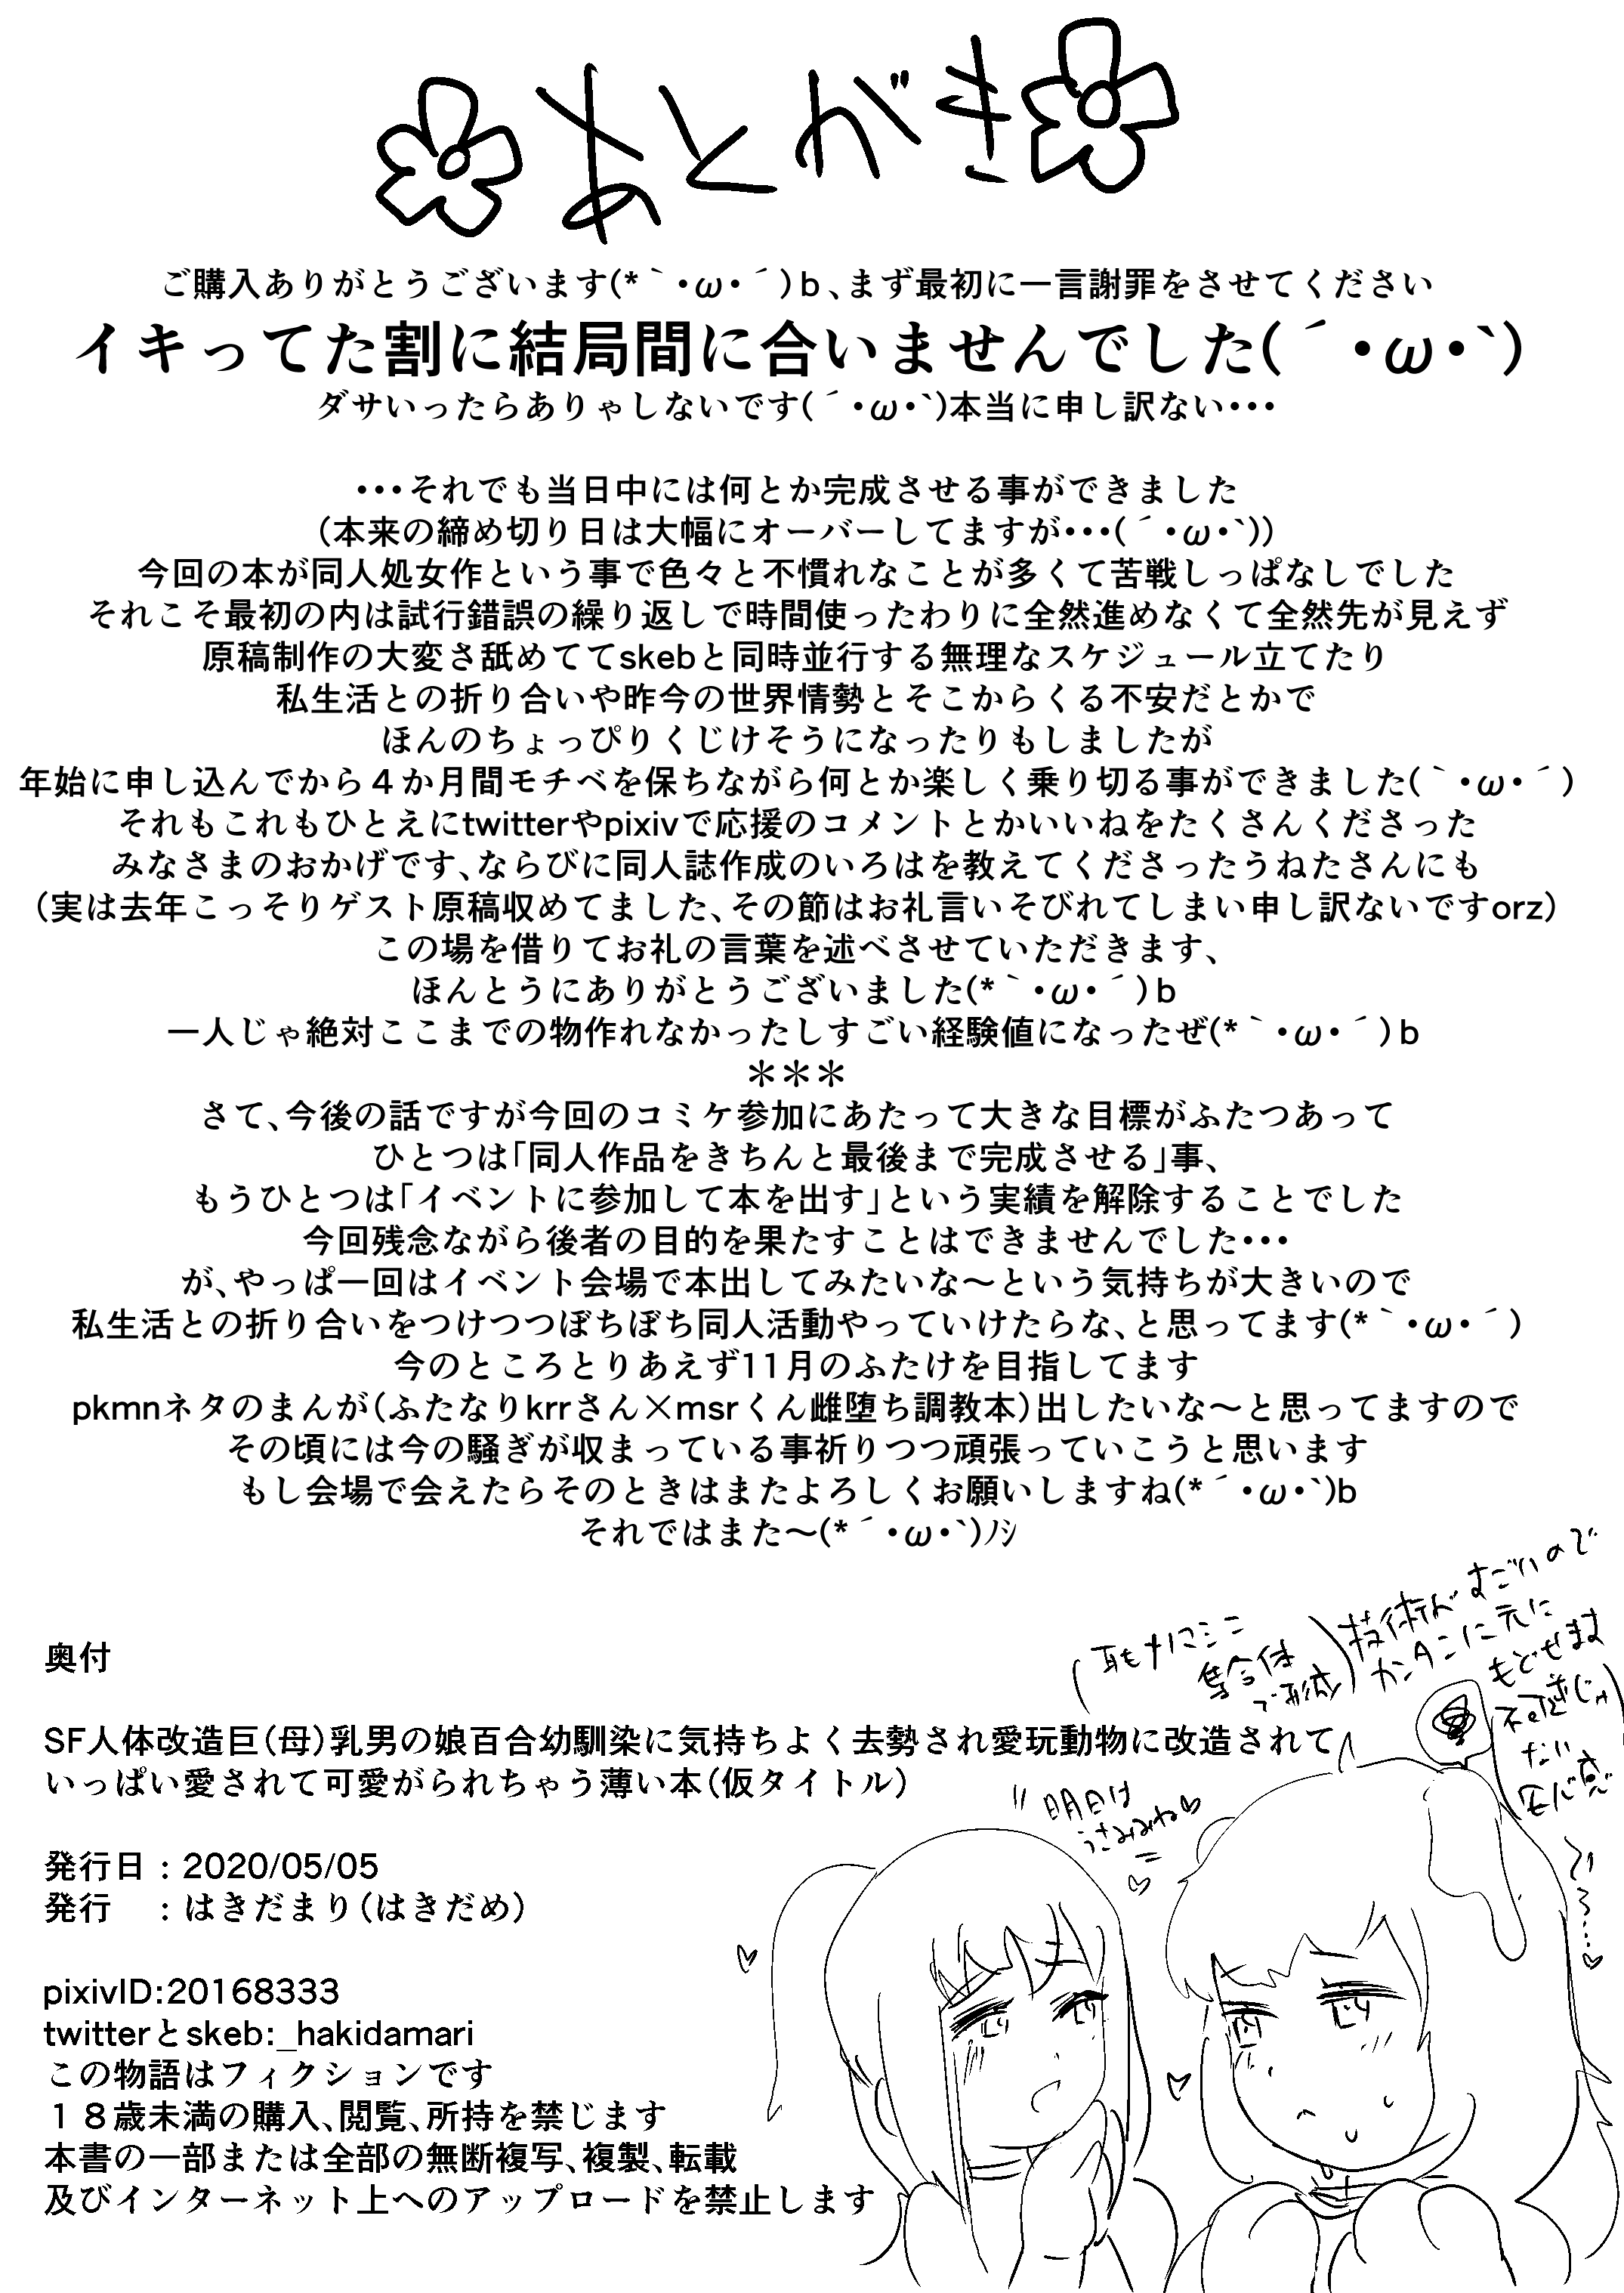 あとがき
ご購入ありがとうございます(*｀・ω・´)ｂ、まず最初に一言謝罪をさせてください
イキってた割に結局間に合いませんでした(´・ω・`)
ダサいったらありゃしないです(´・ω・`)本当に申し訳ない・・・
・・・それでも当日中には何とか完成させる事ができました
（本来の締め切り日は大幅にオーバーしてますが・・・(´・ω・`)）
今回の本が同人処女作という事で色々と不慣れなことが多くて苦戦しっぱなしでした
それこそ最初の内は試行錯誤の繰り返しで時間使ったわりに全然進めなくて全然先が見えず
原稿制作の大変さ舐めててskebと同時並行する無理なスケジュール立てたり
私生活との折り合いや昨今の世界情勢とそこからくる不安だとかで
ほんのちょっぴりくじけそうになったりもしましたが
年始に申し込んでから４か月間モチベを保ちながら何とか楽しく乗り切る事ができました(｀・ω・´)
それもこれもひとえにtwitterやpixivで応援のコメントとかいいねをたくさんくださった
みなさまのおかげです、ならびに同人誌作成のいろはを教えてくださったうねたさんにも
（実は去年こっそりゲスト原稿収めてました、その節はお礼言いそびれてしまい申し訳ないですorz）
この場を借りてお礼の言葉を述べさせていただきます、
ほんとうにありがとうございました(*｀・ω・´)ｂ
一人じゃ絶対ここまでの物作れなかったしすごい経験値になったぜ(*｀・ω・´)ｂ
＊＊＊
さて、今後の話ですが今回のコミケ参加にあたって大きな目標がふたつあって
ひとつは「同人作品をきちんと最後まで完成させる」事、
もうひとつは「イベントに参加して本を出す」という実績を解除することでした
今回残念ながら後者の目的を果たすことはできませんでした・・・
が、やっぱ一回はイベント会場で本出してみたいな～という気持ちが大きいので
私生活との折り合いをつけつつぼちぼち同人活動やっていけたらな、と思ってます(*｀・ω・´)
今のところとりあえず11月のふたけを目指してます
pkmnネタのまんが（ふたなりkrrさん×msrくん雌堕ち調教本）出したいな～と思ってますので
その頃には今の騒ぎが収まっている事祈りつつ頑張っていこうと思います
もし会場で会えたらそのときはまたよろしくお願いしますね(*´・ω・`)b
それではまた～(*´・ω・`)ﾉｼ
技術がすごいので
カンタンに元に
もどせます
不可逆じゃ
ない
安心感
(耳もナノマシン
集合体
で形成)
奥付
SF人体改造巨（母）乳男の娘百合幼馴染に気持ちよく去勢され愛玩動物に改造されて
いっぱい愛されて可愛がられちゃう薄い本（仮タイトル）
"明日は
うさみみね♡"
発行日：2020/05/05
発行　：はきだまり（はきだめ）
pixivID:20168333
twitterとskeb:_hakidamari
この物語はフィクションです
１８歳未満の購入、閲覧、所持を禁じます
本書の一部または全部の無断複写、複製、転載
及びインターネット上へのアップロードを禁止します